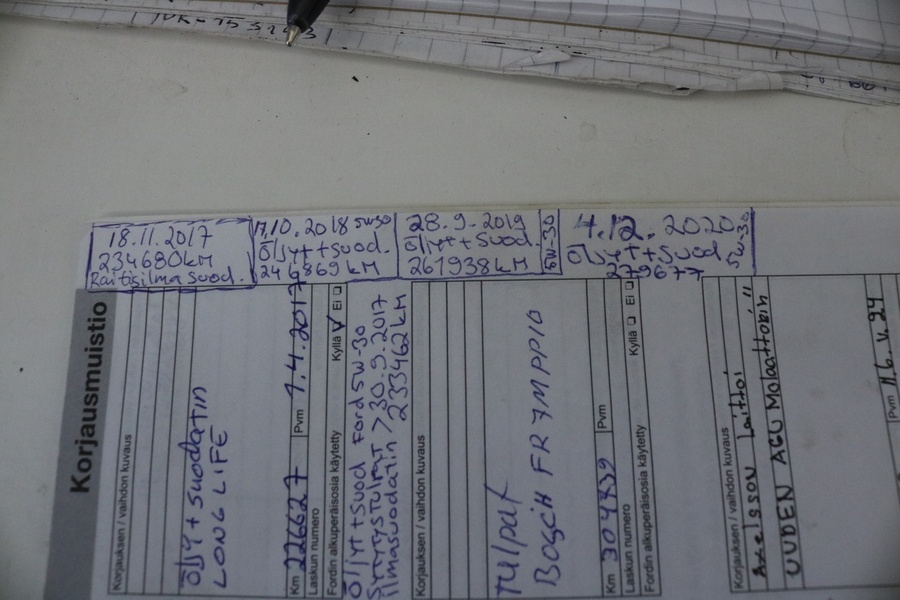 18.11.2017
234680KM
Raitisilmasuod.
17.10.2018 5W30
Öljyt+suod.
246869KM
28.9.2019
Öljyt+suod.
261938KM
5W-30
4.12.2020
Öljyt+suod
279677
5W-30
Korjausmuistio
Korjauksen / vaihdon kuvaus
Öljy+suodatin
LONG LIFE
Km 226627 Pvm 1.4.2017
Laskun numero
Fordin alkuperäisosia käytetty Kyllä Ei
Öljyt+suod Ford 5W-30
Sytytystulpat > 30.9.2017
ilmasuodatin 233462KM
Korjauksen / vaihdon kuvaus
Tulpat
BOSCH FR7MPP10
Km 304839 Pvm
Laskun numero
Fordin alkuperäisosia käytetty Kyllä Ei
Korjauksen / vaihdon kuvaus
Axelsson Laittoi
UUDEN AGU Molaattorin"
Pvm